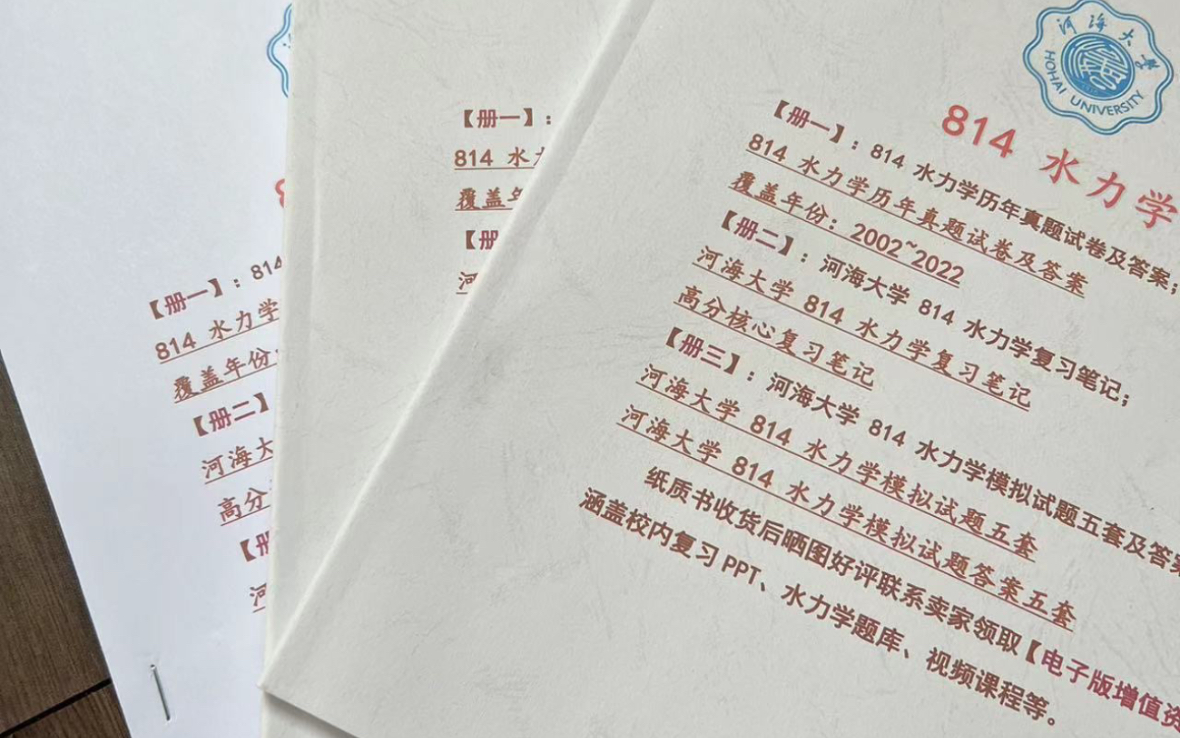 【册一】：814
814 水力学
覆盖年份：
【册二】
河海大
高分
【册一】：
814 水
覆盖年
河海大學
HOHAI UNIVERSITY
814 水力学
【册一】：814 水力学历年真题试卷及答案；
814 水力学历年真题试卷及答案
覆盖年份：2002~2022
【册二】：河海大学 814 水力学复习笔记；
河海大学 814 水力学复习笔记
高分核心复习笔记
【册三】：河海大学 814 水力学模拟试题五套及答案
河海大学 814 水力学模拟试题五套
河海大学 814 水力学模拟试题答案五套
纸质书收货后晒图好评联系卖家领取【电子版增值资
涵盖校内复习 PPT、水力学题库、视频课程等。